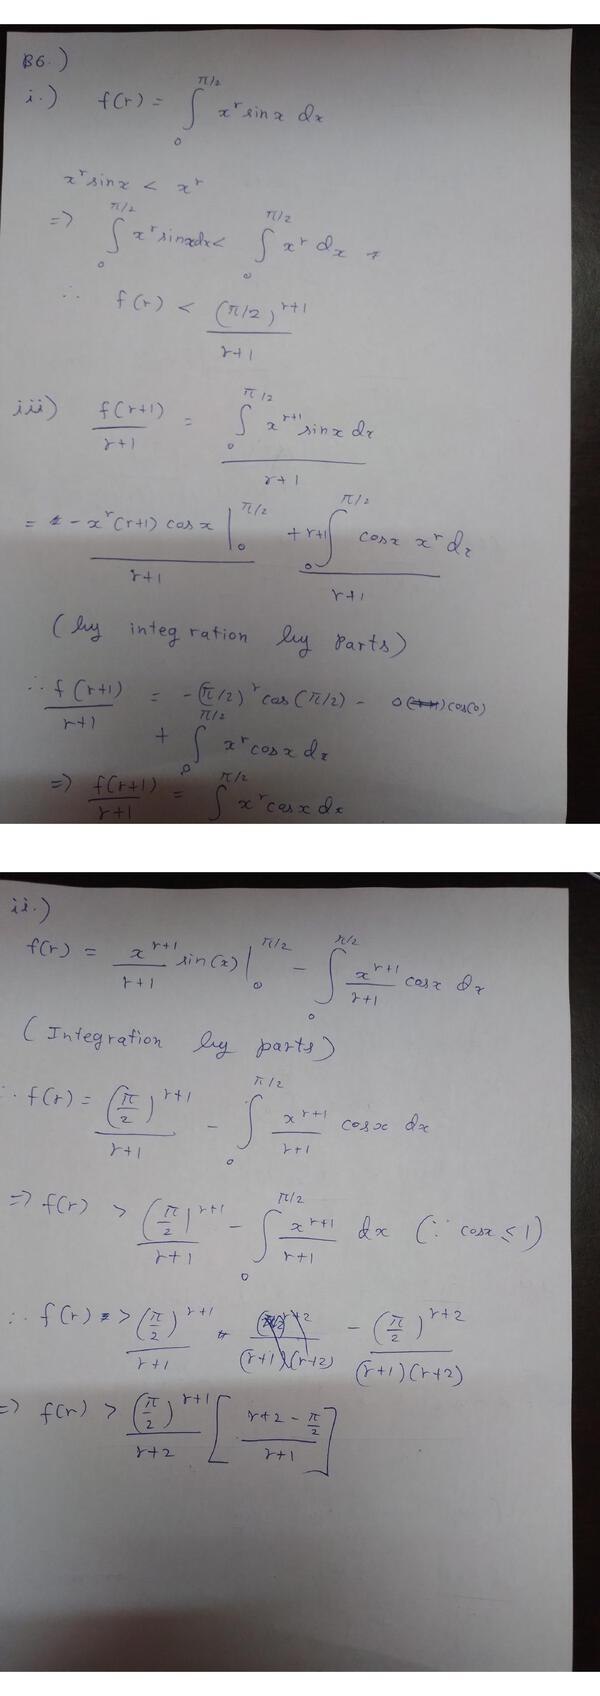 B6.)
i.) f(r) = ∫₀^{π/2} x^r sinx dx
x^r sinx < x^r
=> ∫₀^{π/2} x^r sinx dx < ∫₀^{π/2} x^r dx
∴ f(r) < (π/2)^{r+1} / (r+1)
iii) f(r+1)/(r+1) = ∫₀^{π/2} x^{r+1} sinx dx / (r+1)
= - x^r (r+1) cosx |₀^{π/2} / (r+1) + r+1 ∫₀^{π/2} cosx x^r dx / (r+1)
(by integration by parts)
∴ f(r+1)/(r+1) = -(π/2)^r cos(π/2) - 0 cos(0)
+ ∫₀^{π/2} x^r cosx dx
=> f(r+1)/(r+1) = ∫₀^{π/2} x^r cosx dx
ii.)
f(r) = x^{r+1}/(r+1) sin(x) |₀^{π/2} - ∫₀^{π/2} x^{r+1}/(r+1) cosx dx
(Integration by parts)
∴ f(r) = (π/2)^{r+1}/(r+1) - ∫₀^{π/2} x^{r+1}/(r+1) cosx dx
=> f(r) > (π/2)^{r+1}/(r+1) - ∫₀^{π/2} x^{r+1}/(r+1) dx (∵ cosx ≤ 1)
∴ f(r) > (π/2)^{r+1}/(r+1) - (π/2)^{r+2}/(r+1)(r+2)
=> f(r) > (π/2)^{r+1}/(r+2) [ (r+2 - π/2)/(r+1) ]